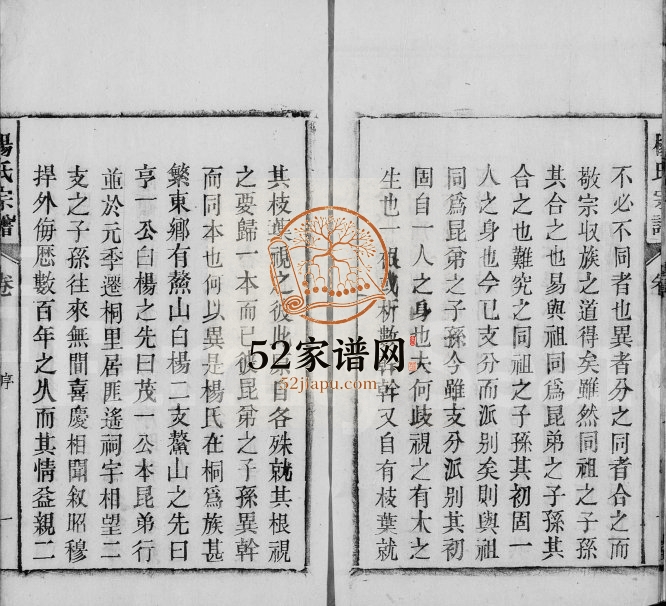 不必不同者也異者分之同者合之而
敬宗収族之道得矣雖然同祖之子孫
其合之也易與祖同爲昆弟之子孫其
合之也難究之同祖之子孫其初固一
人之身也今已支分而派别矣則與祖
同爲昆弟之子孫今雖支分派别其初
固自一人之身也夫何歧視之有木之
生也一根或析數幹幹又自有枝葉就
其枝葉視之彼此自各殊就其根視
之要歸一本而已彼昆弟之子孫異幹
而同本也何以異是楊氏在桐爲族甚
繁東鄉有鰲山白楊二支鰲山之先曰
亨一公白楊之先曰茂一公本昆弟行
並於元季遷桐里居匪遙祠宇相望二
支之子孫往來無間喜慶相聞叙昭穆
捍外侮歷數百年之久而其情益親二
楊氏宗譜 卷 序 一
52家谱网
52jiapu.com